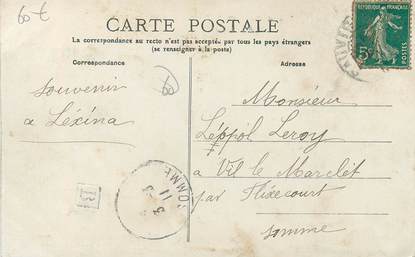 60 €
CARTE POSTALE
La correspondance au recto n'est pas acceptée par tous les pays étrangers
(se renseigner à la poste)
Correspondance
Adresse
REPUBLIQUE FRANÇAISE
5
POSTES
souvenir
a Léxina
Monsieur
Léopol Leroy
a Vil le Marclèt
par Flixecourt
somme
SOMME
11
B